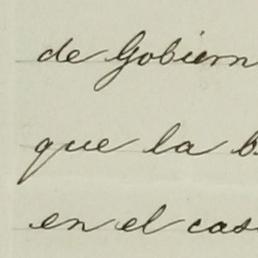 de Gobiern
que la b
en el cas